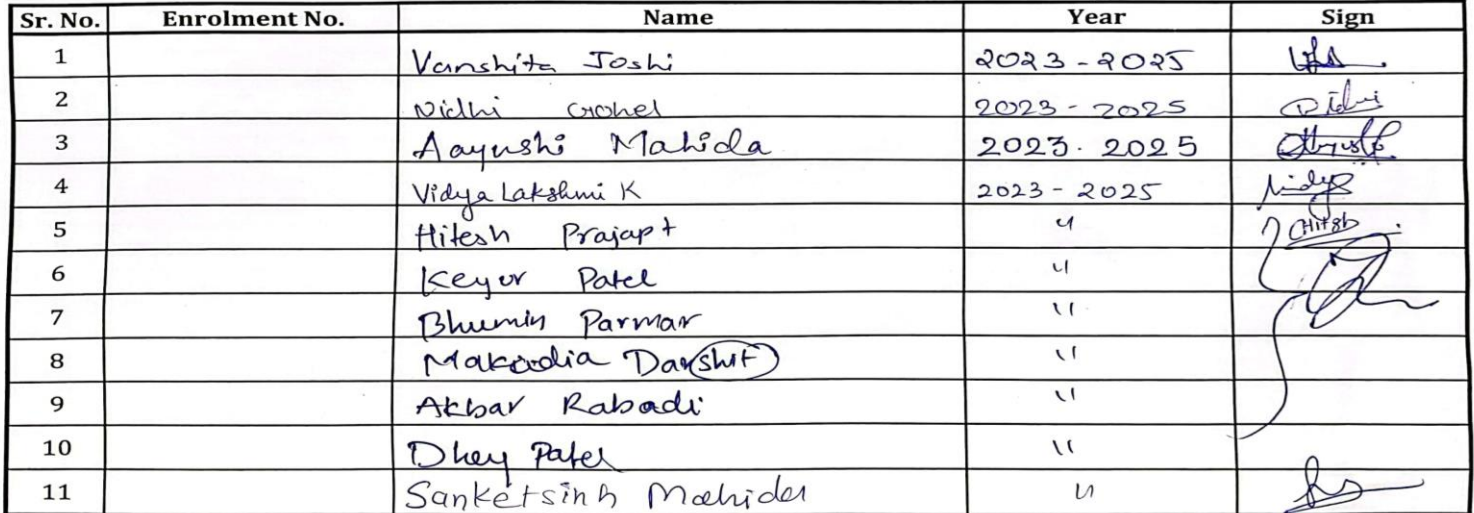 Sr. No. Enrolment No. Name Year Sign
1 Vanshita Joshi 2023-2025
2 Nidhi Gohel 2023-2025 Nidhi
3 Aayushi Mahida 2023-2025 Aayushi
4 Vidya Lakshmi K 2023-2025 Vidya
5 Hitesh Prajapt " Hitesh
6 Keyur Patel "
7 Bhumin Parmar "
8 Makadia Darshit "
9 Akbar Rabadi "
10 Dhey Patel "
11 Sanketsinh Mahida "